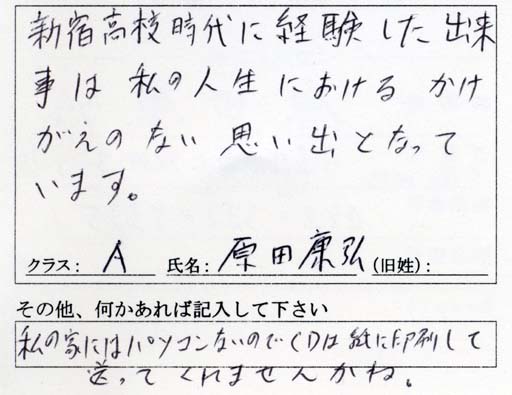 新宿高校時代に経験した出来
事は私の人生におけるかけ
がえのない思い出となって
います。
クラス： A 氏名：原田康弘 (旧姓)：
その他、何かあれば記入して下さい
私の家にはパソコンないのでCDは紙に印刷して
送ってくれませんかね。